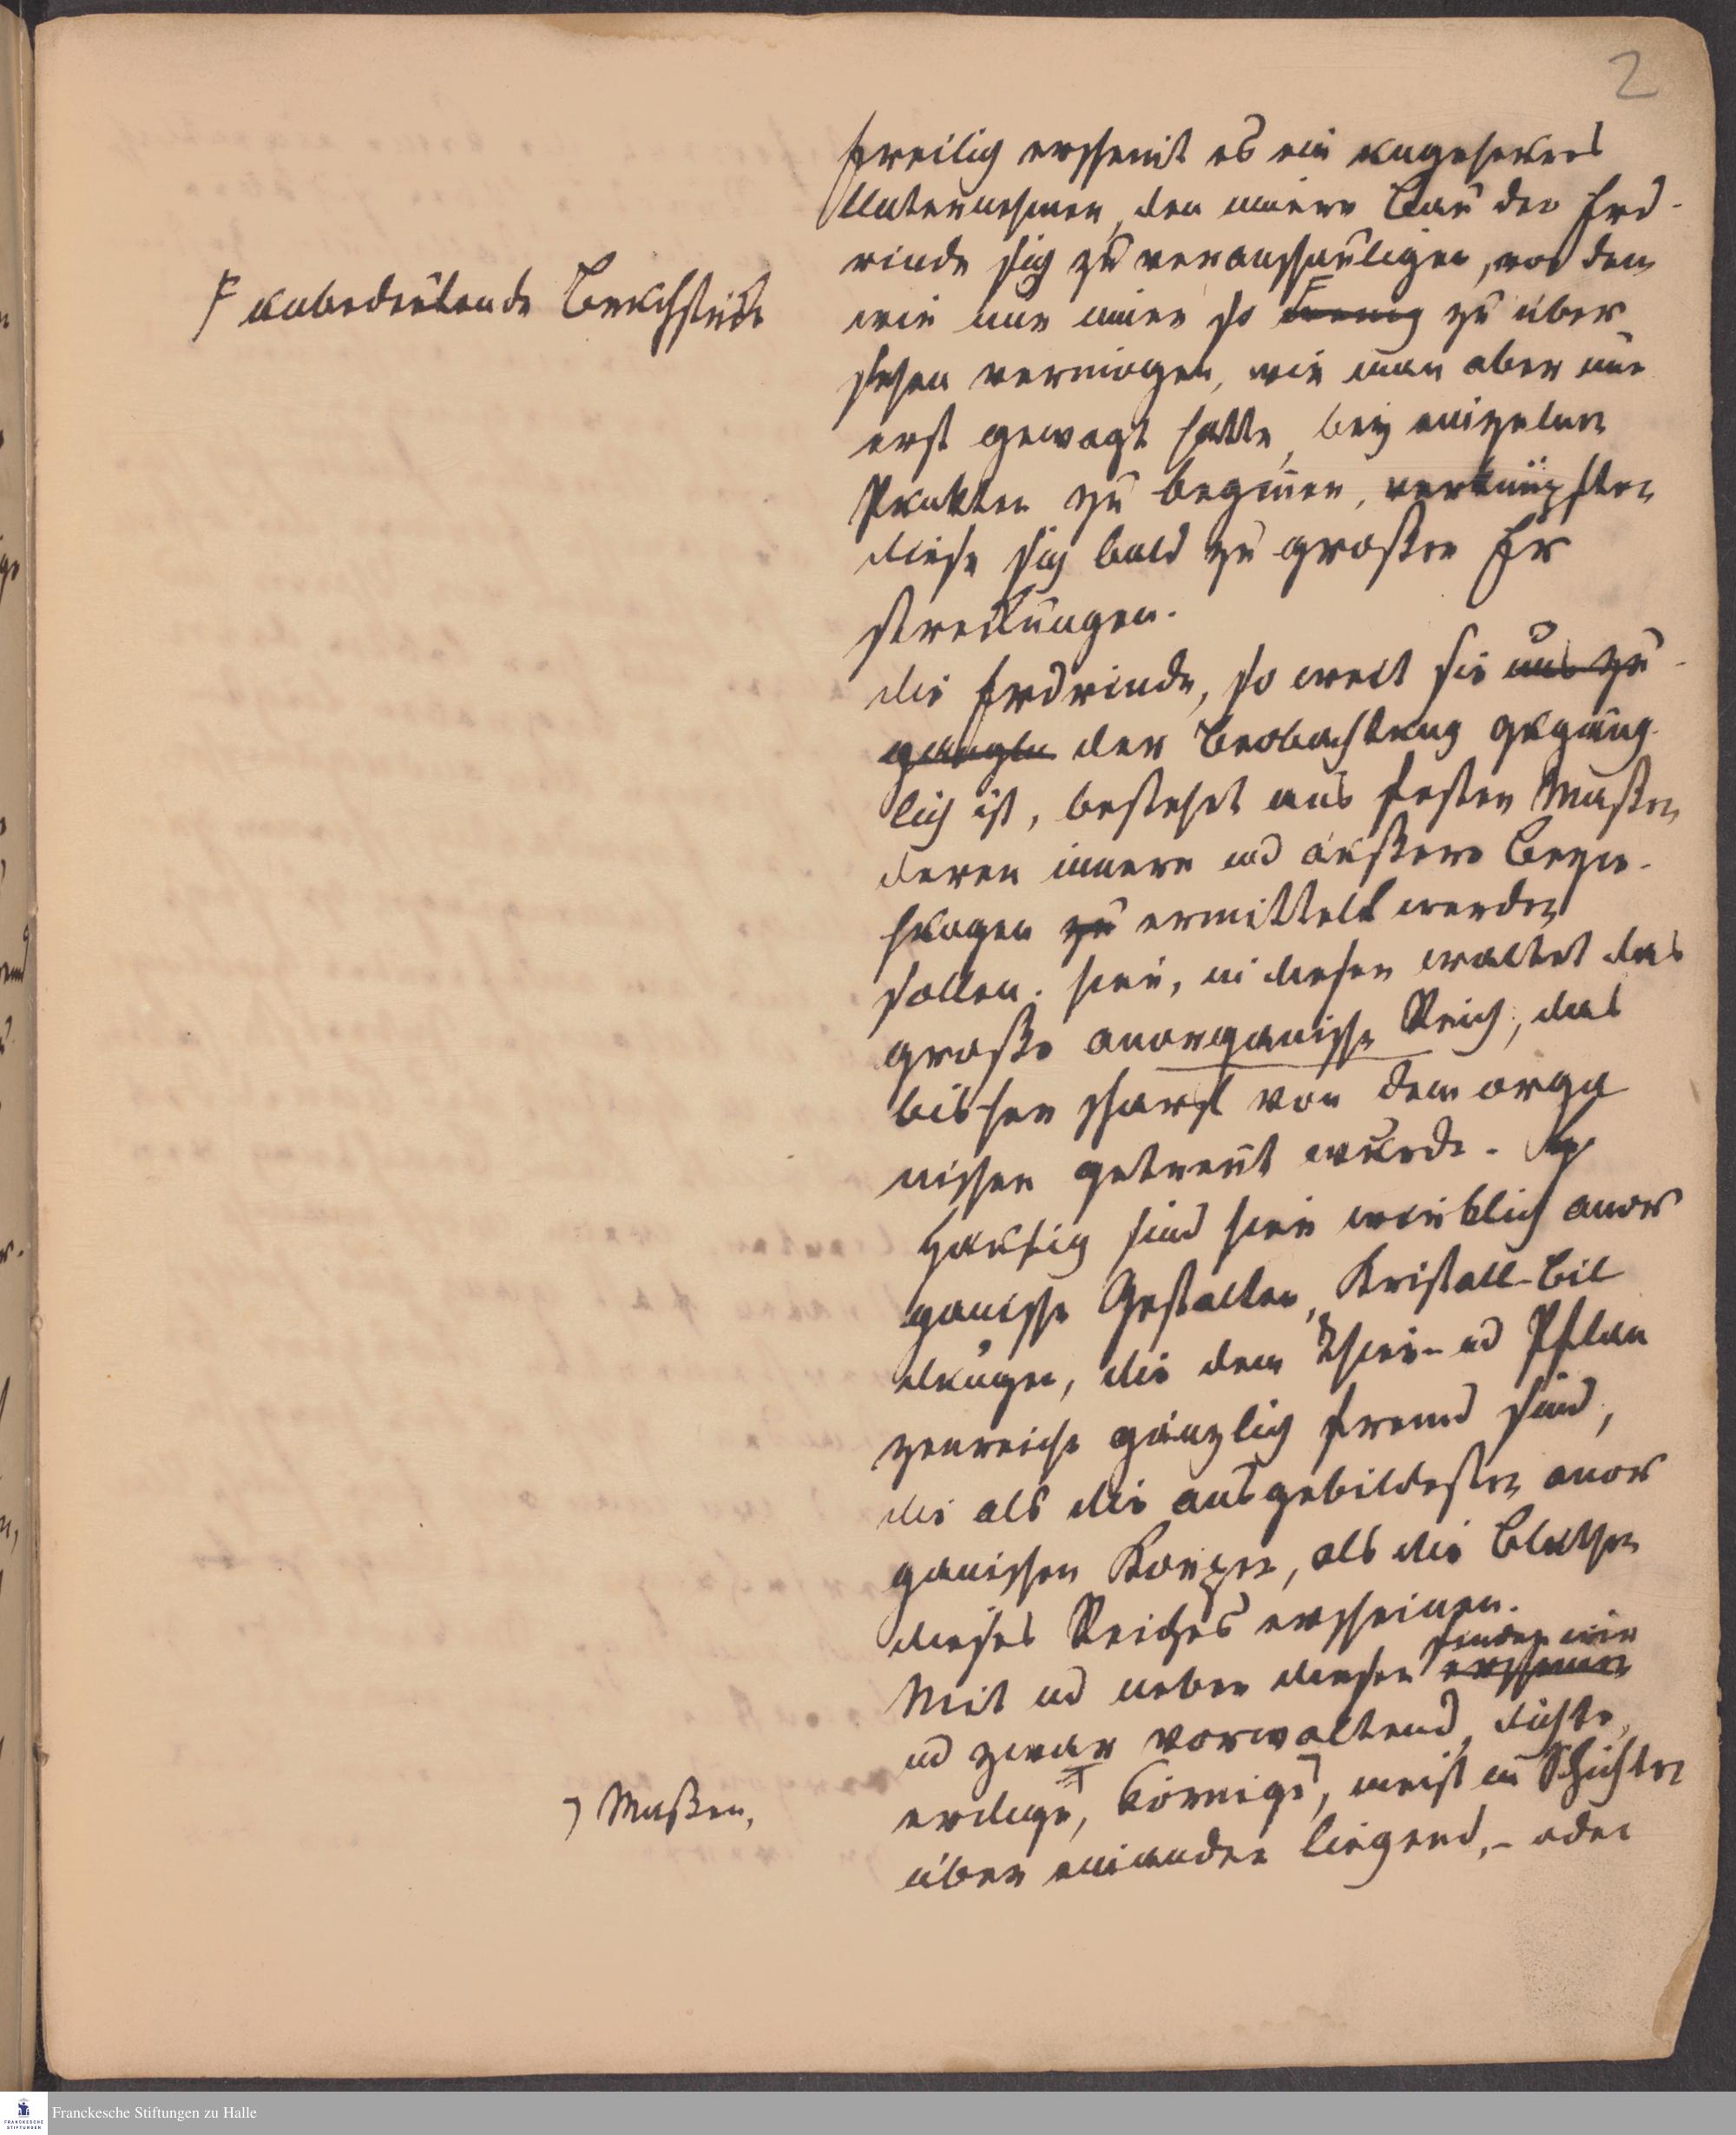 2
freilig erscheint es ein ungeheures
Unternehmen, den innern Bau der Erd-
rinde sich zu veranschauligen, von dem
wir nur immer so wenig zu über-
sehen vermögen, wie man aber nur
erst gewagt hatte, bey einzelnen
Punkten zu beginnen, verknüpften
diese sich bald zu großen Er
streckungen.
F unbedeutende Bruchstücke
die Erdrinde, so weit sie uns zu-
gänglich der Beobachtung zugäng-
lich ist, bestehet aus festen Maßen
deren innere und äußere Bezie-
hungen zu ermittelt werden
sollen. hier, in diesen waltet das
große anorganische Reich, das
bisher scharf von dem orga
nischen getrennt wurde.
Häufig sind hier wirklich anor
ganische Gestalten, Kristall-Bil
dungen, die dem Thier- und Pflan
zenreiche gänzlich fremd sind,
die als die ausgebildesten anor
ganischen Körper, als die Blüthen
dieses Reiches erscheinen.
Mit und neben diesen erscheinen finden wir
und zwar vorwaltend, dichte,
erdige, körnige, meist in Schichten
über einander liegend, - oder
Maßen,
Franckesche Stiftungen zu Halle